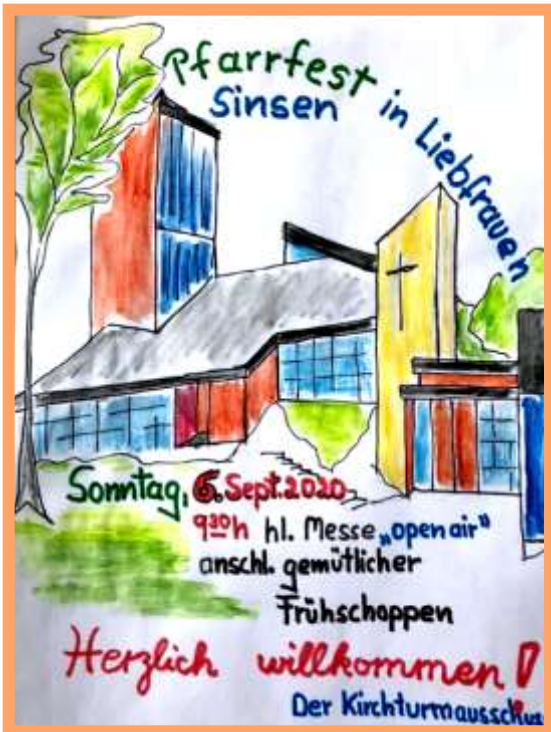 Pfarrfest in Liebfrauen
Sinsen
Sonntag, 6. Sept. 2020
9³⁰h hl. Messe „open air"
anschl. gemütlicher
Frühschoppen
Herzlich willkommen!
Der Kirchturmausschuss